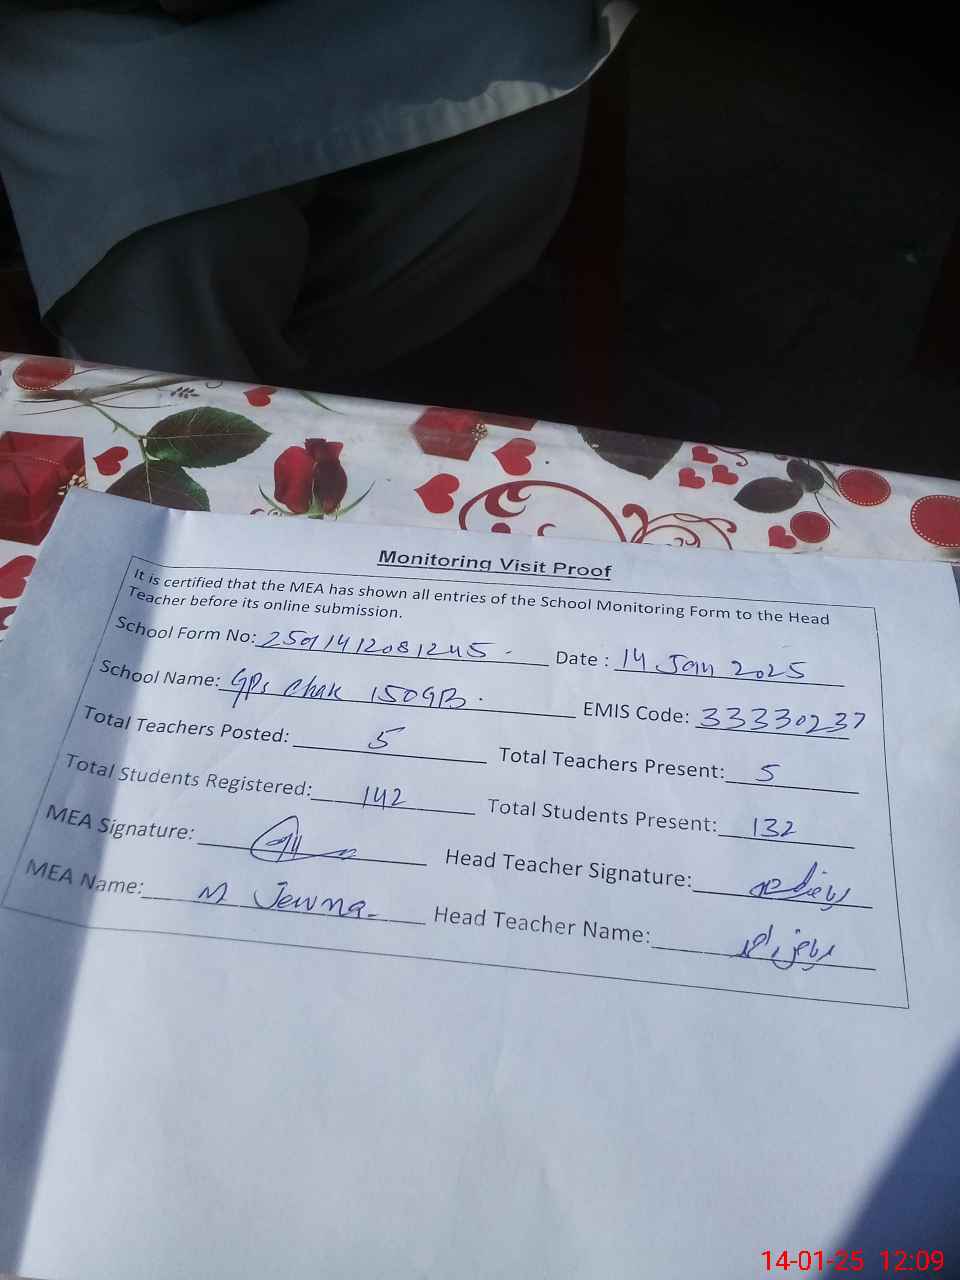 Monitoring Visit Proof
It is certified that the MEA has shown all entries of the School Monitoring Form to the Head
Teacher before its online submission.
School Form No: 25011412081245 . Date : 14 Jan 2025
School Name: GPS Chak 150GB . EMIS Code: 33330237
Total Teachers Posted: 5 Total Teachers Present: 5
Total Students Registered: 142 Total Students Present: 132
MEA Signature: Head Teacher Signature:
MEA Name: M Head Teacher Name:
14-01-25 12:09